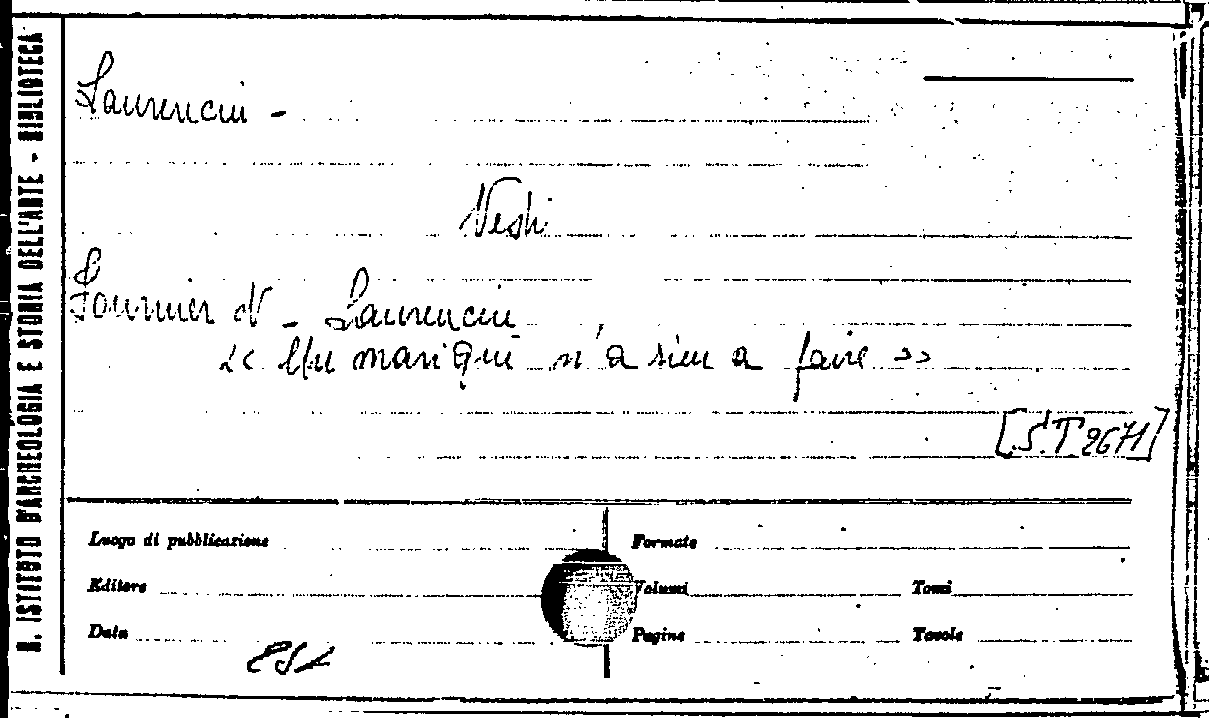 R. ISTITUTO D'ARCHEOLOGIA E STORIA DELL'ARTE - BIBLIOTECA
Laurencin -
Vedi
Fournier N - Laurencin
<< Un mari qui n'a rien a faire >>
[S.T 2671]
Luogo di pubblicazione
Formato
Editore
Volumi
Tomi
Data
Pagine
Tavole